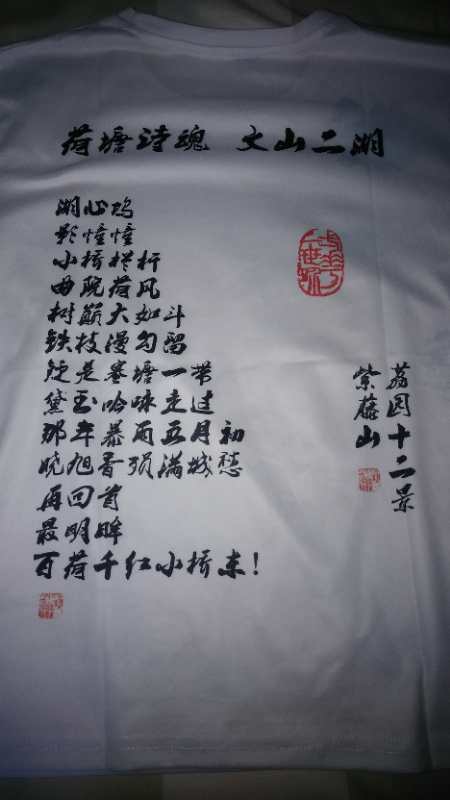 荷塘诗魂 文山二湖
湖心坞
影憧憧
小桥栏杆
曲院荷风
树巅大如斗
铁枝漫勾留
疑是寒塘一带
黛玉吟咏走过
那年暴雨五月初
晓旭香殒满城愁
再回首
最明眸
百荷千红小桥东！
荔园十二景
紫藤山